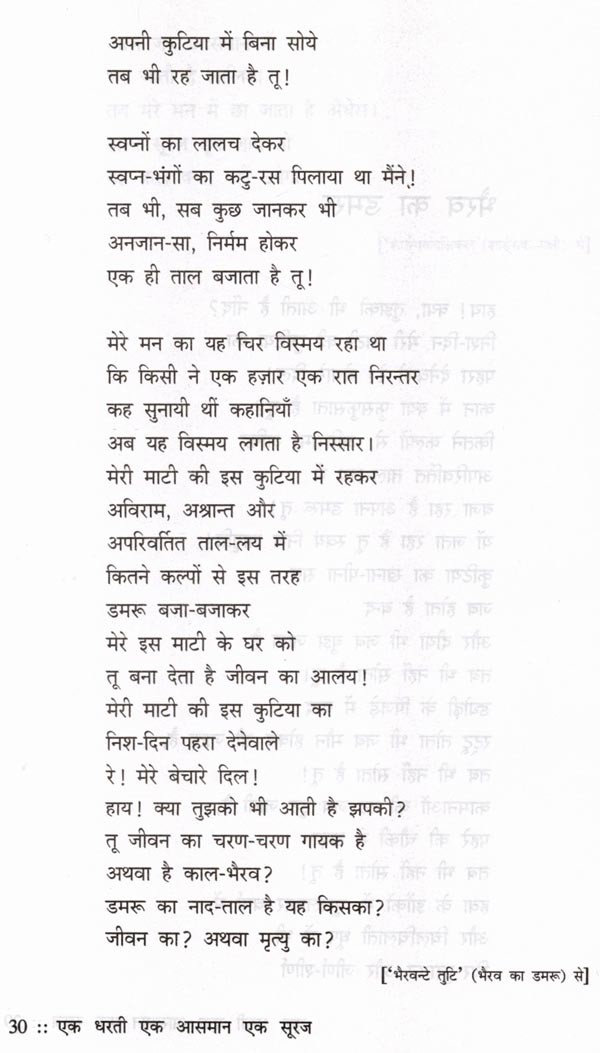 अपनी कुटिया में बिना सोये
तब भी रह जाता है तू!
स्वप्नों का लालच देकर
स्वप्न-भंगों का कटु-रस पिलाया था मैंने!
तब भी, सब कुछ जानकर भी
अनजान-सा, निर्मम होकर
एक ही ताल बजाता है तू!
मेरे मन का यह चिर विस्मय रहा था
कि किसी ने एक हज़ार एक रात निरन्तर
कह सुनायी थीं कहानियाँ
अब यह विस्मय लगता है निस्सार।
मेरी माटी की इस कुटिया में रहकर
अविराम, अश्रान्त और
अपरिवर्तित ताल-लय में
कितने कल्पों से इस तरह
डमरू बजा-बजाकर
मेरे इस माटी के घर को
तू बना देता है जीवन का आलय!
मेरी माटी की इस कुटिया का
निश-दिन पहरा देनेवाले
रे! मेरे बेचारे दिल!
हाय! क्या तुझको भी आती है झपकी?
तू जीवन का चरण-चरण गायक है
अथवा है काल-भैरव?
डमरू का नाद-ताल है यह किसका?
जीवन का? अथवा मृत्यु का?
['भैरवन्टे तुटि' (भैरव का डमरू) से]
30 :: एक धरती एक आसमान एक सूरज